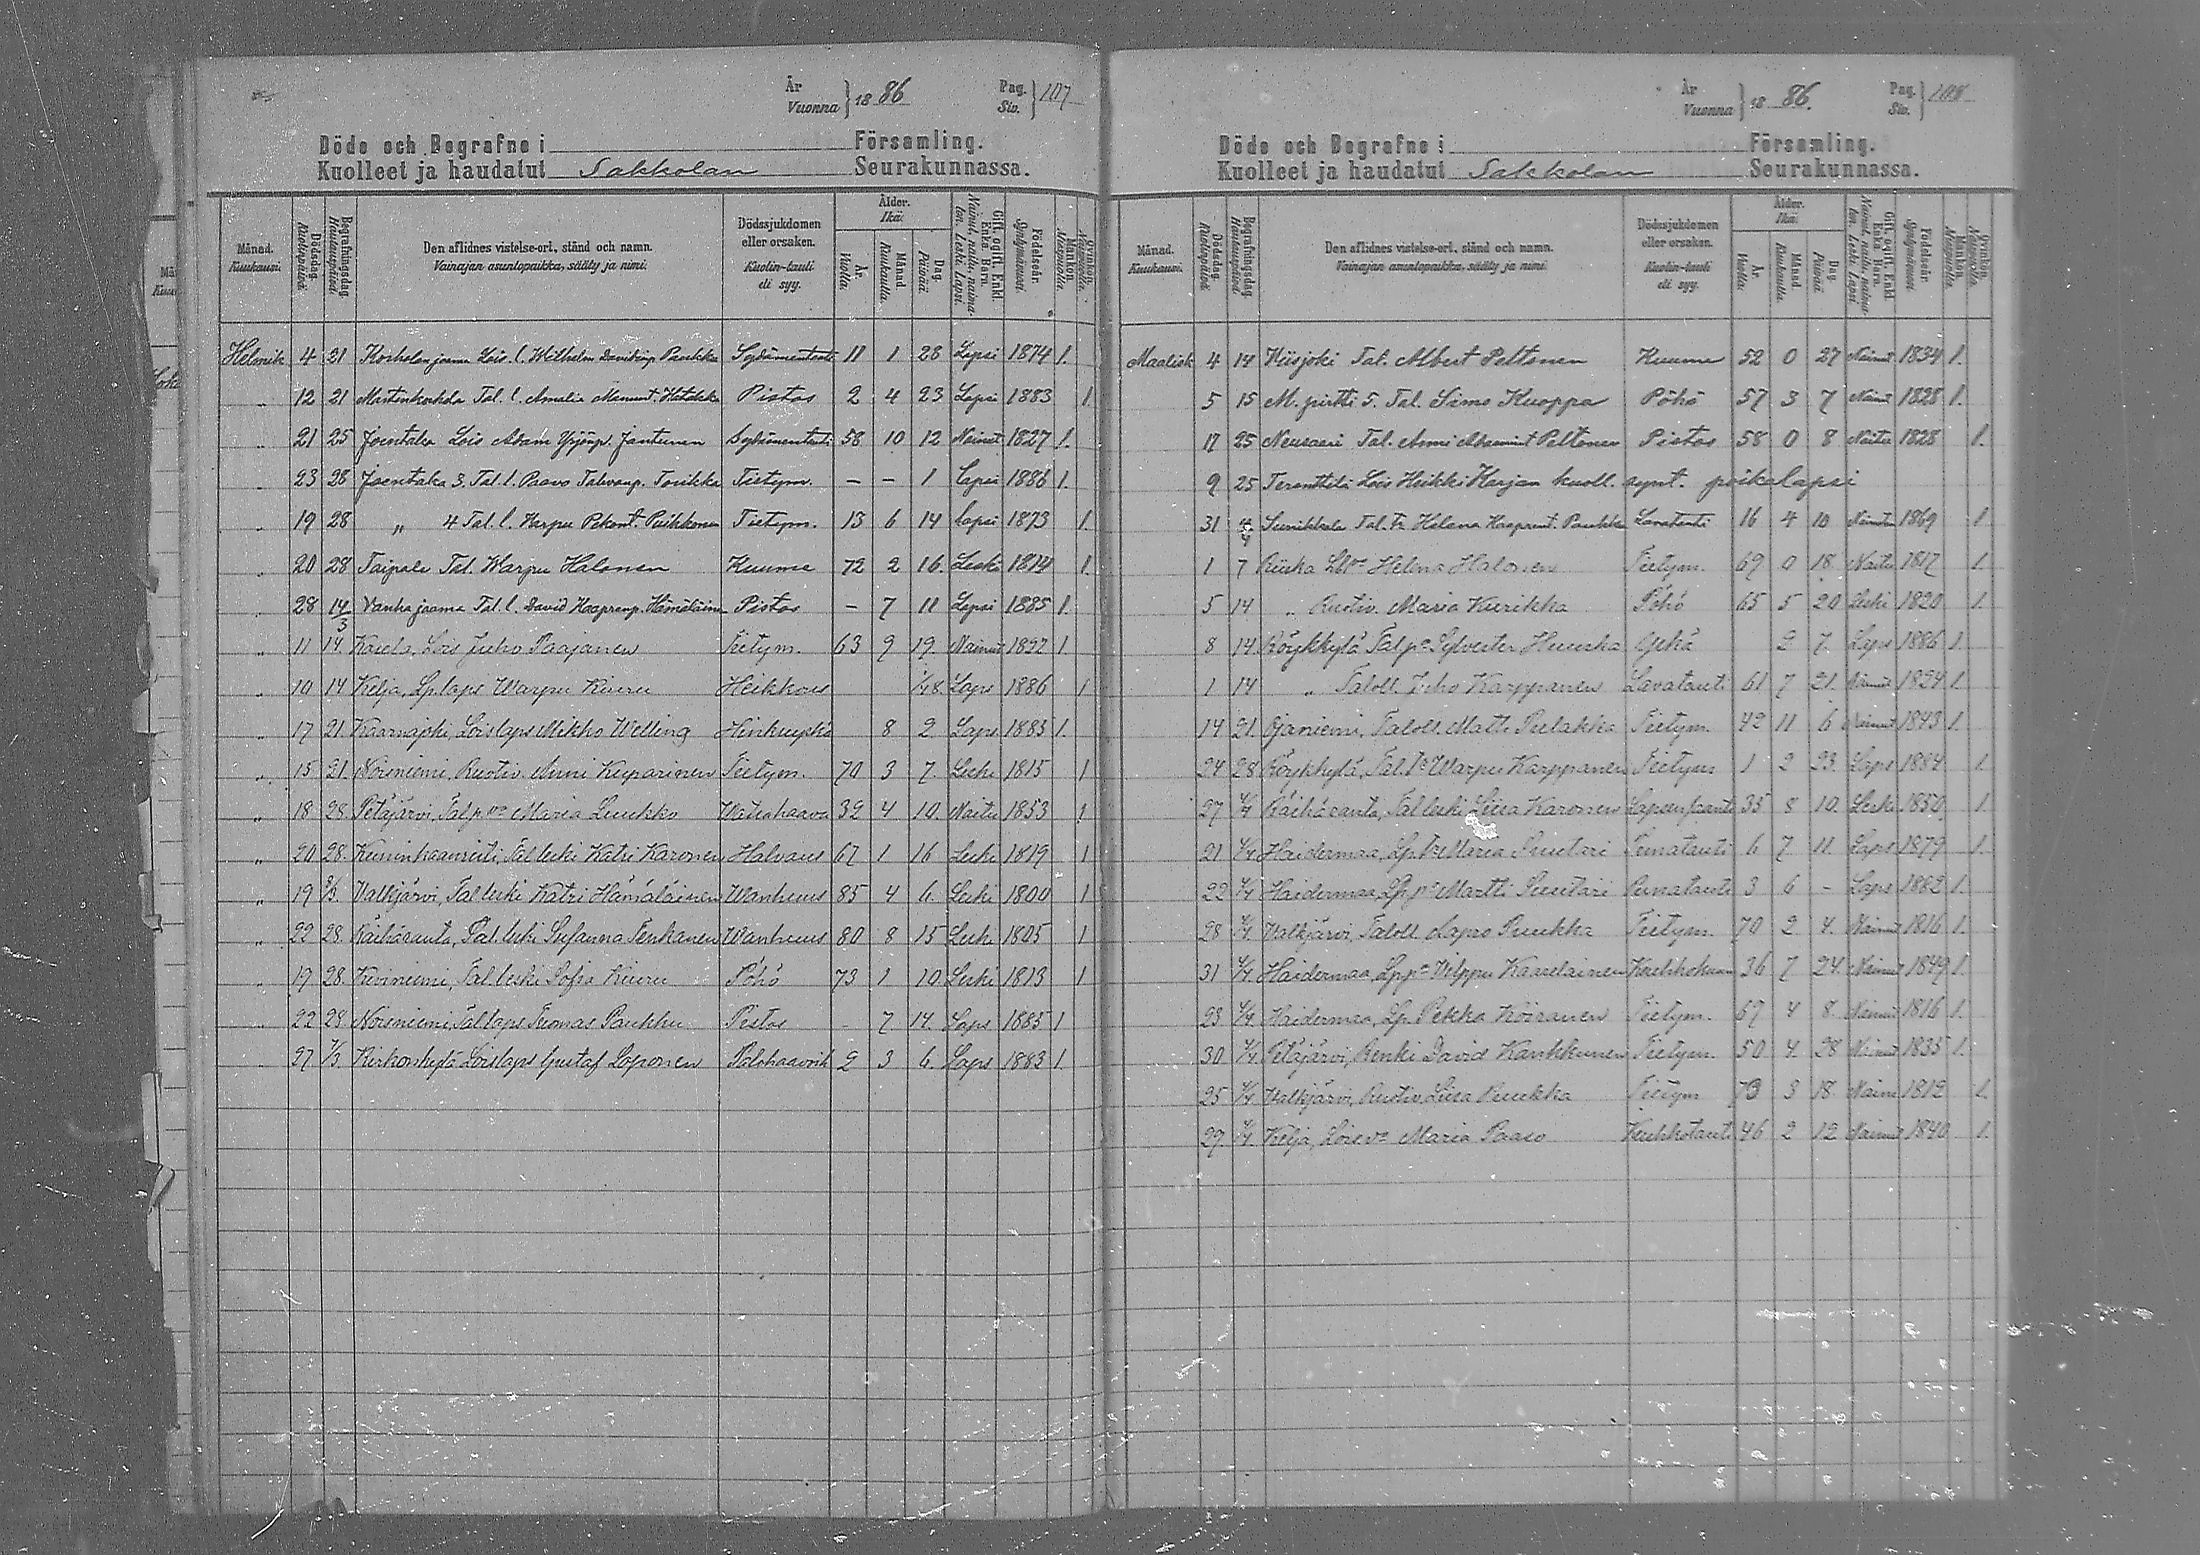 År Vuonna } 18 86 Pag. Siv. } 107
Döde och Begrafne i Församling.
Kuolleet ja haudatut Sakkolan Seurakunnassa.
Månad. Kuukausi. Dödsdag. Kuolinpäivä. Begrafningsdag. Hautauspäivä. Den aflidnes vistelse-ort, stånd och namn. Vainajan asuntopaikka, sääty ja nimi. Dödssjukdomen eller orsaken. Kuolin-tauti eli syy. Ålder. Ikä: År. Vuotta. Månad. Kuukautta. Dag. Päivää. Gift, ogift, Enkl. Enka, Barn. Nainut, naitu, naimaton. Leski, Lapsi. Födelseår. Syntymävuosi. Mankön. Miespuolta. Qvinkön. Naispuolta.
Helmik 4 21 Lois. l. Wilhelm Davidinp. Paukku 11 1 28 Lapsi 1874 1.
" 12 21 Tal. l. Amalia Pistos 2 4 23 Lapsi 1883 1.
" 21 25 Joentaka Lois Adam Yrjönp. Jantunen Sydämentauti 58 10 12 Nainut 1827 1.
" 23 28 Joentaka 3. Tal. l. Paavo Toiikka Tietym. – – 1 Lapsi 1886 1.
" 19 28 " 4 Tal. l. Warpu Pekant. Puikkonen Tietym. 13 6 14 Lapsi 1873 1.
" 20 28 Taipale Tal. Warpu Halonen Kuume 72 2 16. Leski 1814 1.
" 28 14/3 Vanhajaama Tal. l. David Hämäläinen Pistos – 7 11 Lapsi 1885 1.
" 11 14. Lois Juho Paajanen Tietym. 63 9 19. Nainut 1822 1.
" 10 14 Kelja, Lp. laps Warpu Kiuru Heikkous Laps 1886 1
" 17 21. Kaarnajoki, Loislaps Mikko Welling Hinkuyskä 8 2. Laps 1885 1.
" 15 21. Noisniemi, Ruotiv. Anni Kuparinen Tietym. 70 3 7. Leski 1815 1
" 18 28. Petäjärvi, Tal. p. va Maria Luukko Watsahaava 32 4 10. Naitu 1853 1
" 20 28. Tal leski Katri Karonen Halvaus 67 1 16 Leski 1819 1
" 19 Valkjärvi, Tal leski Katri Hämäläinen Wanhuus 85 4 6. Leski 1800 1
" 22 28. Räihäranta, Tal. leski Susanna Tenkanen Wanhuus 80 8 15 Leski 1805 1
" 19 28. Kiviniemi, Tal. leski Sofia Kiuru Pöhö 73 1 10. Leski 1813 1
" 22 28 Noisniemi, Tal laps Tuomas Paukku Pistos - 7 14. Laps 1885 1
" 27 7/3. Kirkonkylä Loislaps Gustaf Loponen 2 3 6. Laps 1883 1.
År Vuonna } 18 86. Pag. Siv. } 108
Döde och Begrafne i Församling.
Kuolleet ja haudatut Sakkolan Seurakunnassa.
Månad. Kuukausi. Dödsdag. Kuolinpäivä. Begrafningsdag. Hautauspäivä. Den aflidnes vistelse-ort, stånd och namn. Vainajan asuntopaikka, sääty ja nimi. Dödssjukdomen eller orsaken. Kuolin-tauti eli syy. Ålder. Ikä: År. Vuotta. Månad. Kuukautta. Dag. Päivää. Gift, ogift, Enkl. Enka, Barn. Nainut, naitu, naimaton. Leski, Lapsi. Födelseår. Syntymävuosi. Mankön. Miespuolta. Qvinkön. Naispuolta.
Maalisk 4 14 Kiisjoki Tal. Albert Peltonen Kuume 52 0 27 Nainut 1834 1.
5 15 M. pirtti 5. Tal. Simo Kuoppa Pöhö 57 3 7 Nainut 1828 1.
17 25 Neusaari Tal. Anni Peltonen Pistos 58 0 8 Naitu 1828 1.
9 25 Terenttilä Lois Heikki Karjan kuoll. synt. poikalapsi
31 4/4 Tal. tr. Helena Paukku Lavatauti 16 4 10 1869 1.
1 7 Riiska Helena Halonen Tietym. 69 0 18. Naitu 1817 1.
5 14 " Ruotiv. Maria Kurikka Pöhö 65 5 20 Leski 1820 1.
8 14. Röykkylä Tal p. Sylvester Huuska Yskä 2 7. Laps 1886 1.
1 14 " Taloll. Juho Karppanen Lavatauti 61 7 21. Nainut 1824 1.
14 21. Ojaniemi, Taloll. Matti Pulakka Tietym. 42 11 6 Nainut 1843 1.
24 28 Röykkylä, Tal. Warpu Karppanen Tietym 1 2 23. Laps 1884 1.
27 4/4 Räihäranta, Tal leski Liisa Karonen 35 8 10. Leski 1850 1.
21 4/4 Haidermaa, Lp. Maria Suutari Punatauti 6 7 11. Laps 1879 1.
22 4/4 Haidermaa, Lp. p. Martti Suutari Punatauti 3 6 – Laps 1882 1.
28 4/4. Valkjärvi, Taloll Puukka Tietym. 70 2 4. Nainut 1816 1.
31 4/4. Haidermaa, Lp. p. Wilppu 36 7 24. Nainut 1849 1.
23 4/4. Haidermaa, Lp. Pekka Koiranen Tietym. 67 4 8. Nainut 1816 1.
30 4/4. Petäjärvi, Renki David Kankkunen Tietym. 50 4. 28 Nainut 1835 1.
25 4/4 Valkjärvi, Ruotiv. Liisa Puukka Tietym 73 3 18. 1812 1.
27. 4/4 Kelja, Lois va Maria Paaso Keuhkotauti 46 2 12 1840 1.